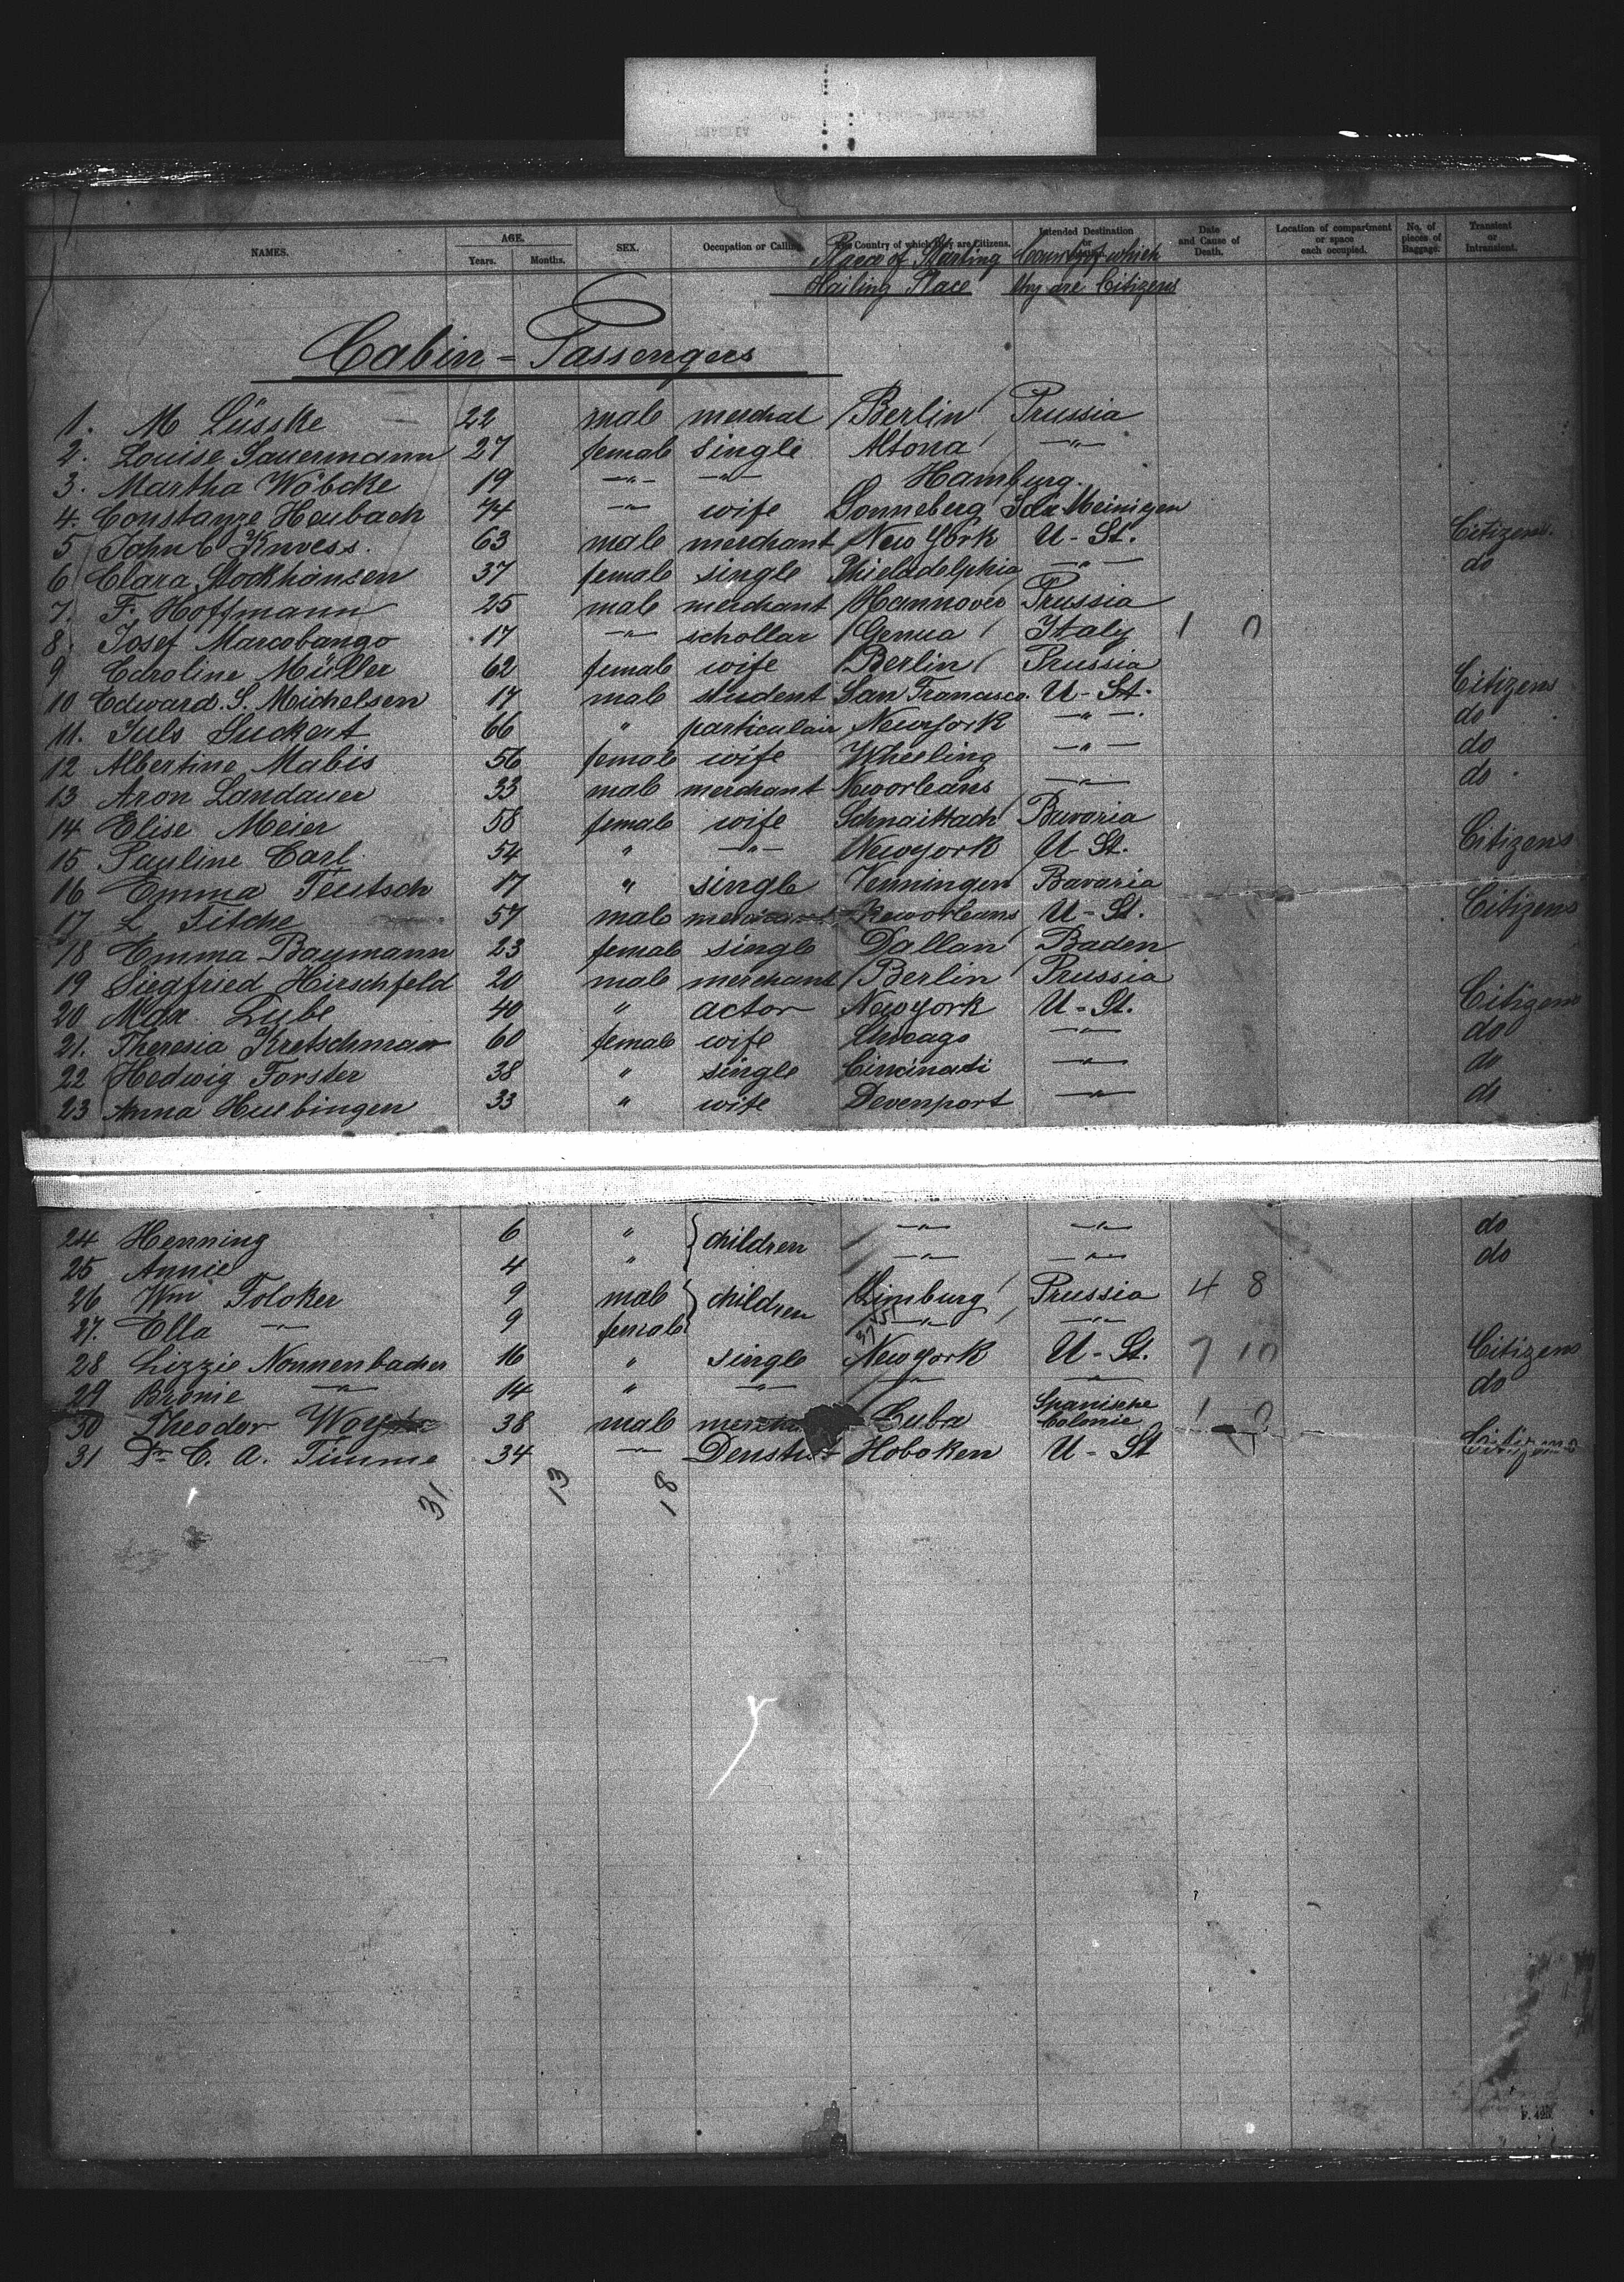 NAMES. AGE. Years. Months. SEX. Occupation or Calling. The Country of which they are Citizens. Intended Destination or Date and Cause of Death. Location of compartment or space each occupied. No. of pieces of Baggage. Transient or Intransient.
Place of Starting Country of which
Hailing Place they are Citizens
Cabin-Passengers
1. M Lüsske 22 male merchat Berlin Prussia
2. Louise Sauermann 27 female single Altona —"—
3. Martha Wöbcke 19 —"— —"— Hamburg.
4. Constanze Heubach 74 —"— wife Sonneberg Meiningen
5 John C Knvess. 63 male merchant New York U-St. Citizens.
6 Clara Stockhausen 37 female single Phieladelphia —"— do
7. F. Hoffmann 25 male merchant Hannover Prussia
8. Josef Marcobango 17 —"— schollar Genua Italy 1 0
9 Caroline Müller 62 female wife Berlin Prussia
10 Edward. S. Michelsen 17 male student San Francisco. U-St. Citizens
11. Juls Suckert 66 " particulair Newyork —"— do
12 Albertine Mabis 56 female wife Wheeling —"— do
13 Aron Landauer 33 male merchant Neworleans —"— do
14 Elise Meier 58 female wife Schnaittach Bavaria
15 Pauline Carl 54 " —"— Newyork U-St. Citizens
16 Emma Teutsch 17 " single Venningen Bavaria
17 L Titche 57 male merchant Neworleans U-St. Citizens
18 Emma Baumann 23 female single Dallan Baden
19 Siegfried Hirschfeld 20 male merchant Berlin Prussia
20 Max. Lube 40 " actor Newyork U-St. Citizens
21. Theresia Kretschmar 60 female wife Chicago —"— do
22 Hedwig Forster 38 " single Cincinati —"— do
23 Anna Huebingen 33 " wife Devenport —"— do
24 Henning 6 " children —"— —"— do
25 Annie 4 " —"— —"— do
26 Wm Toloker 9 male children Limburg Prussia 4 8
27. Ella —"— 9 female —"— —"—
28 Lizzie Nonnenbacher 16 " single Newyork U-St. 7 10 Citizens
29 Bronie —"— 14 " —"— —"— —"— do
30 Theodor 38 male Cuba Spanische Colonie 1 0
31 Dr C. A. Timme 34 —"— Denstist Hoboken U-St Citizens
31. 13 18